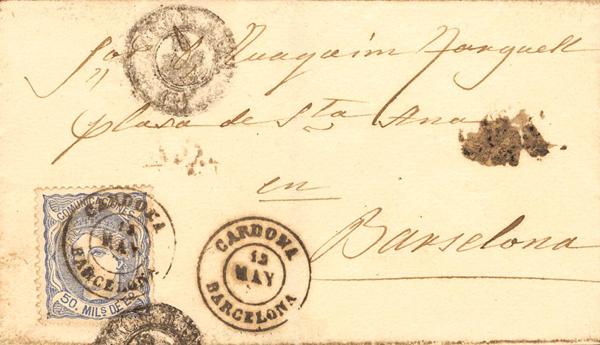 Sor Dn Juaquim Torquell
plasa de Sta Ana
en
Barselona
COMUNICACIONES
50. MILs DE
CARDONA
12
MAY
BARCELONA
CARDONA
12
MAY
BARCELONA